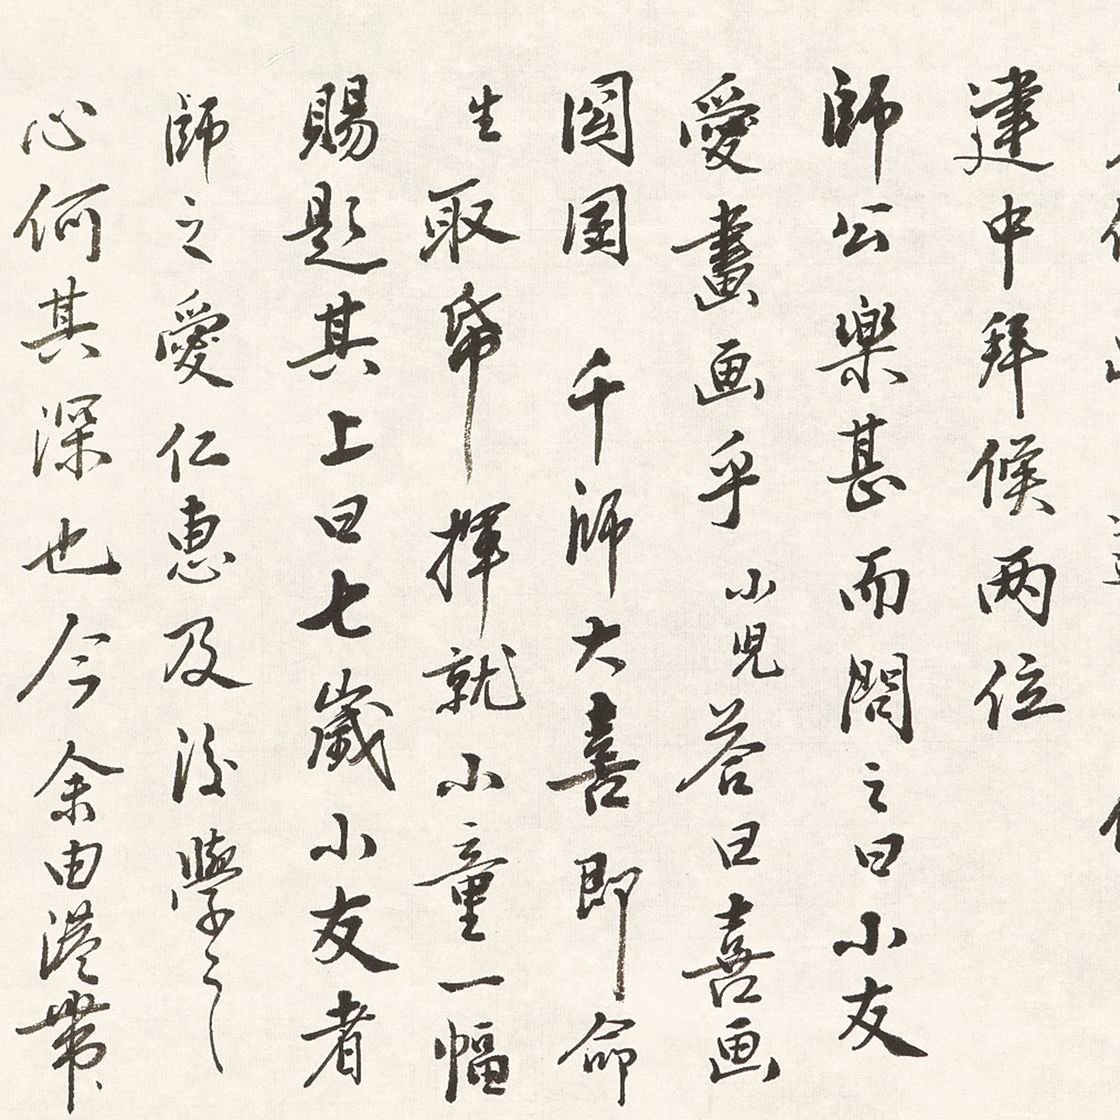 建中拜候两位
師公樂甚而問之曰小友
愛畫画乎小児荅曰喜画
圆圆千師大喜即命
生取帋揮就小童一幅
賜題其上曰七歲小友者
師之愛仁惠及後學之
心何其深也今余由港帶